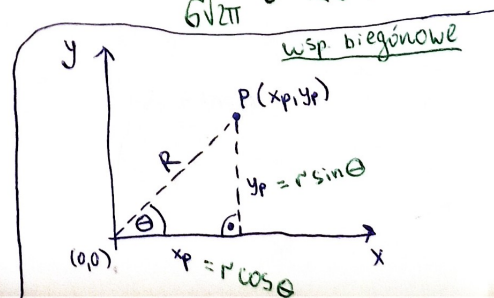 6√2π
wsp. biegónowe
y
P(xp,yp)
R
yp = r sin θ
θ
(0,0)
xp = r cos θ
x